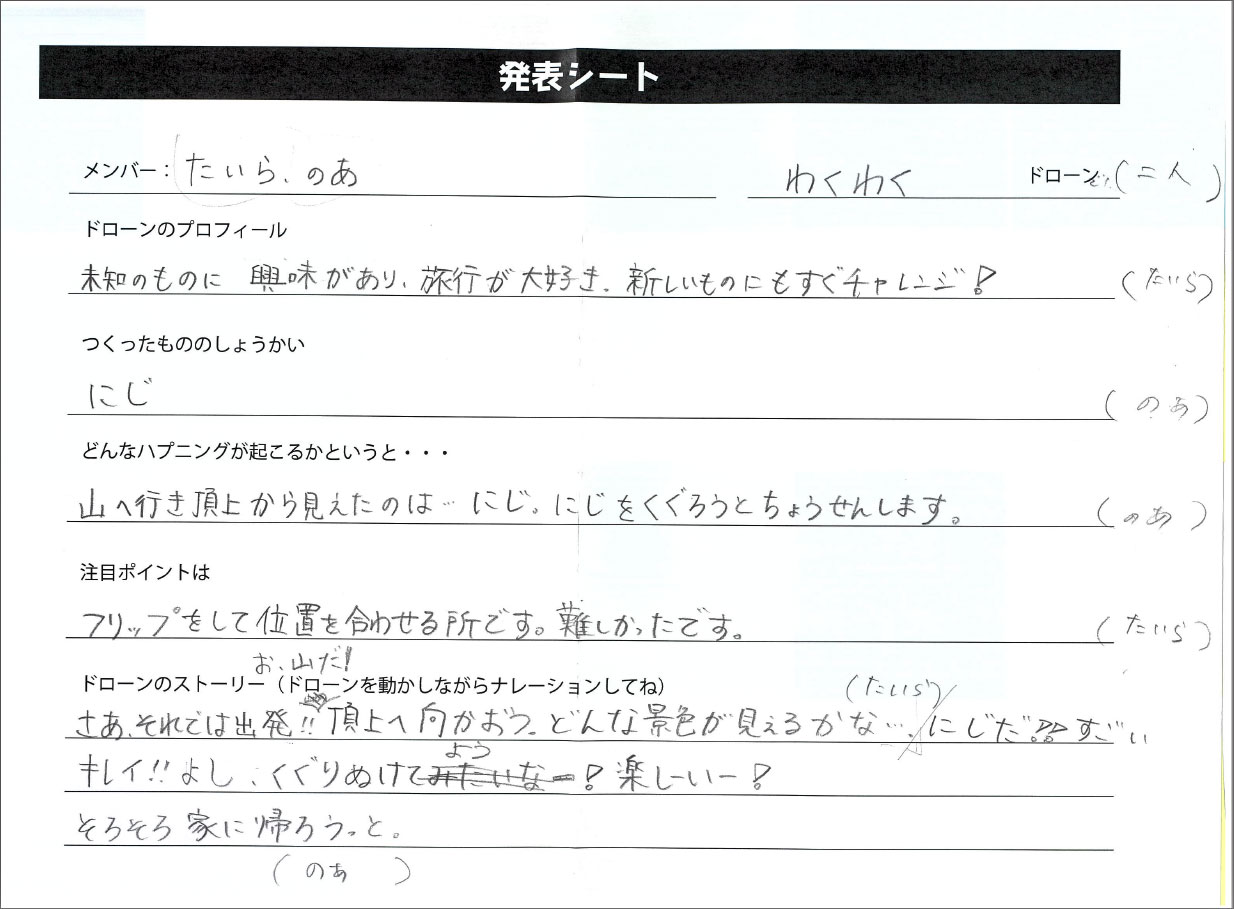 発表シート
メンバー：たいら、のあ わくわく ドローン（二人）
ドローンのプロフィール
未知のものに 興味があり、旅行が大好き、新しいものにもすぐチャレンジ！（たいら）
つくったもののしょうかい
にじ（のあ）
どんなハプニングが起こるかというと・・・
山へ行き頂上から見えたのは…にじ。にじをくぐろうとちょうせんします。（のあ）
注目ポイントは
フリップをして位置を合わせる所です。難しかったです。（たいら）
お、山だ！
ドローンのストーリー（ドローンを動かしながらナレーションしてね）（たいら）
さあ、それでは出発!! 頂上へ向かおう。どんな景色が見えるかな…。にじだ!! すごい
キレイ!! よし、くぐりぬけてみたいなー！楽しーいー！
よう
そろそろ家に帰ろうっと。
（のあ）